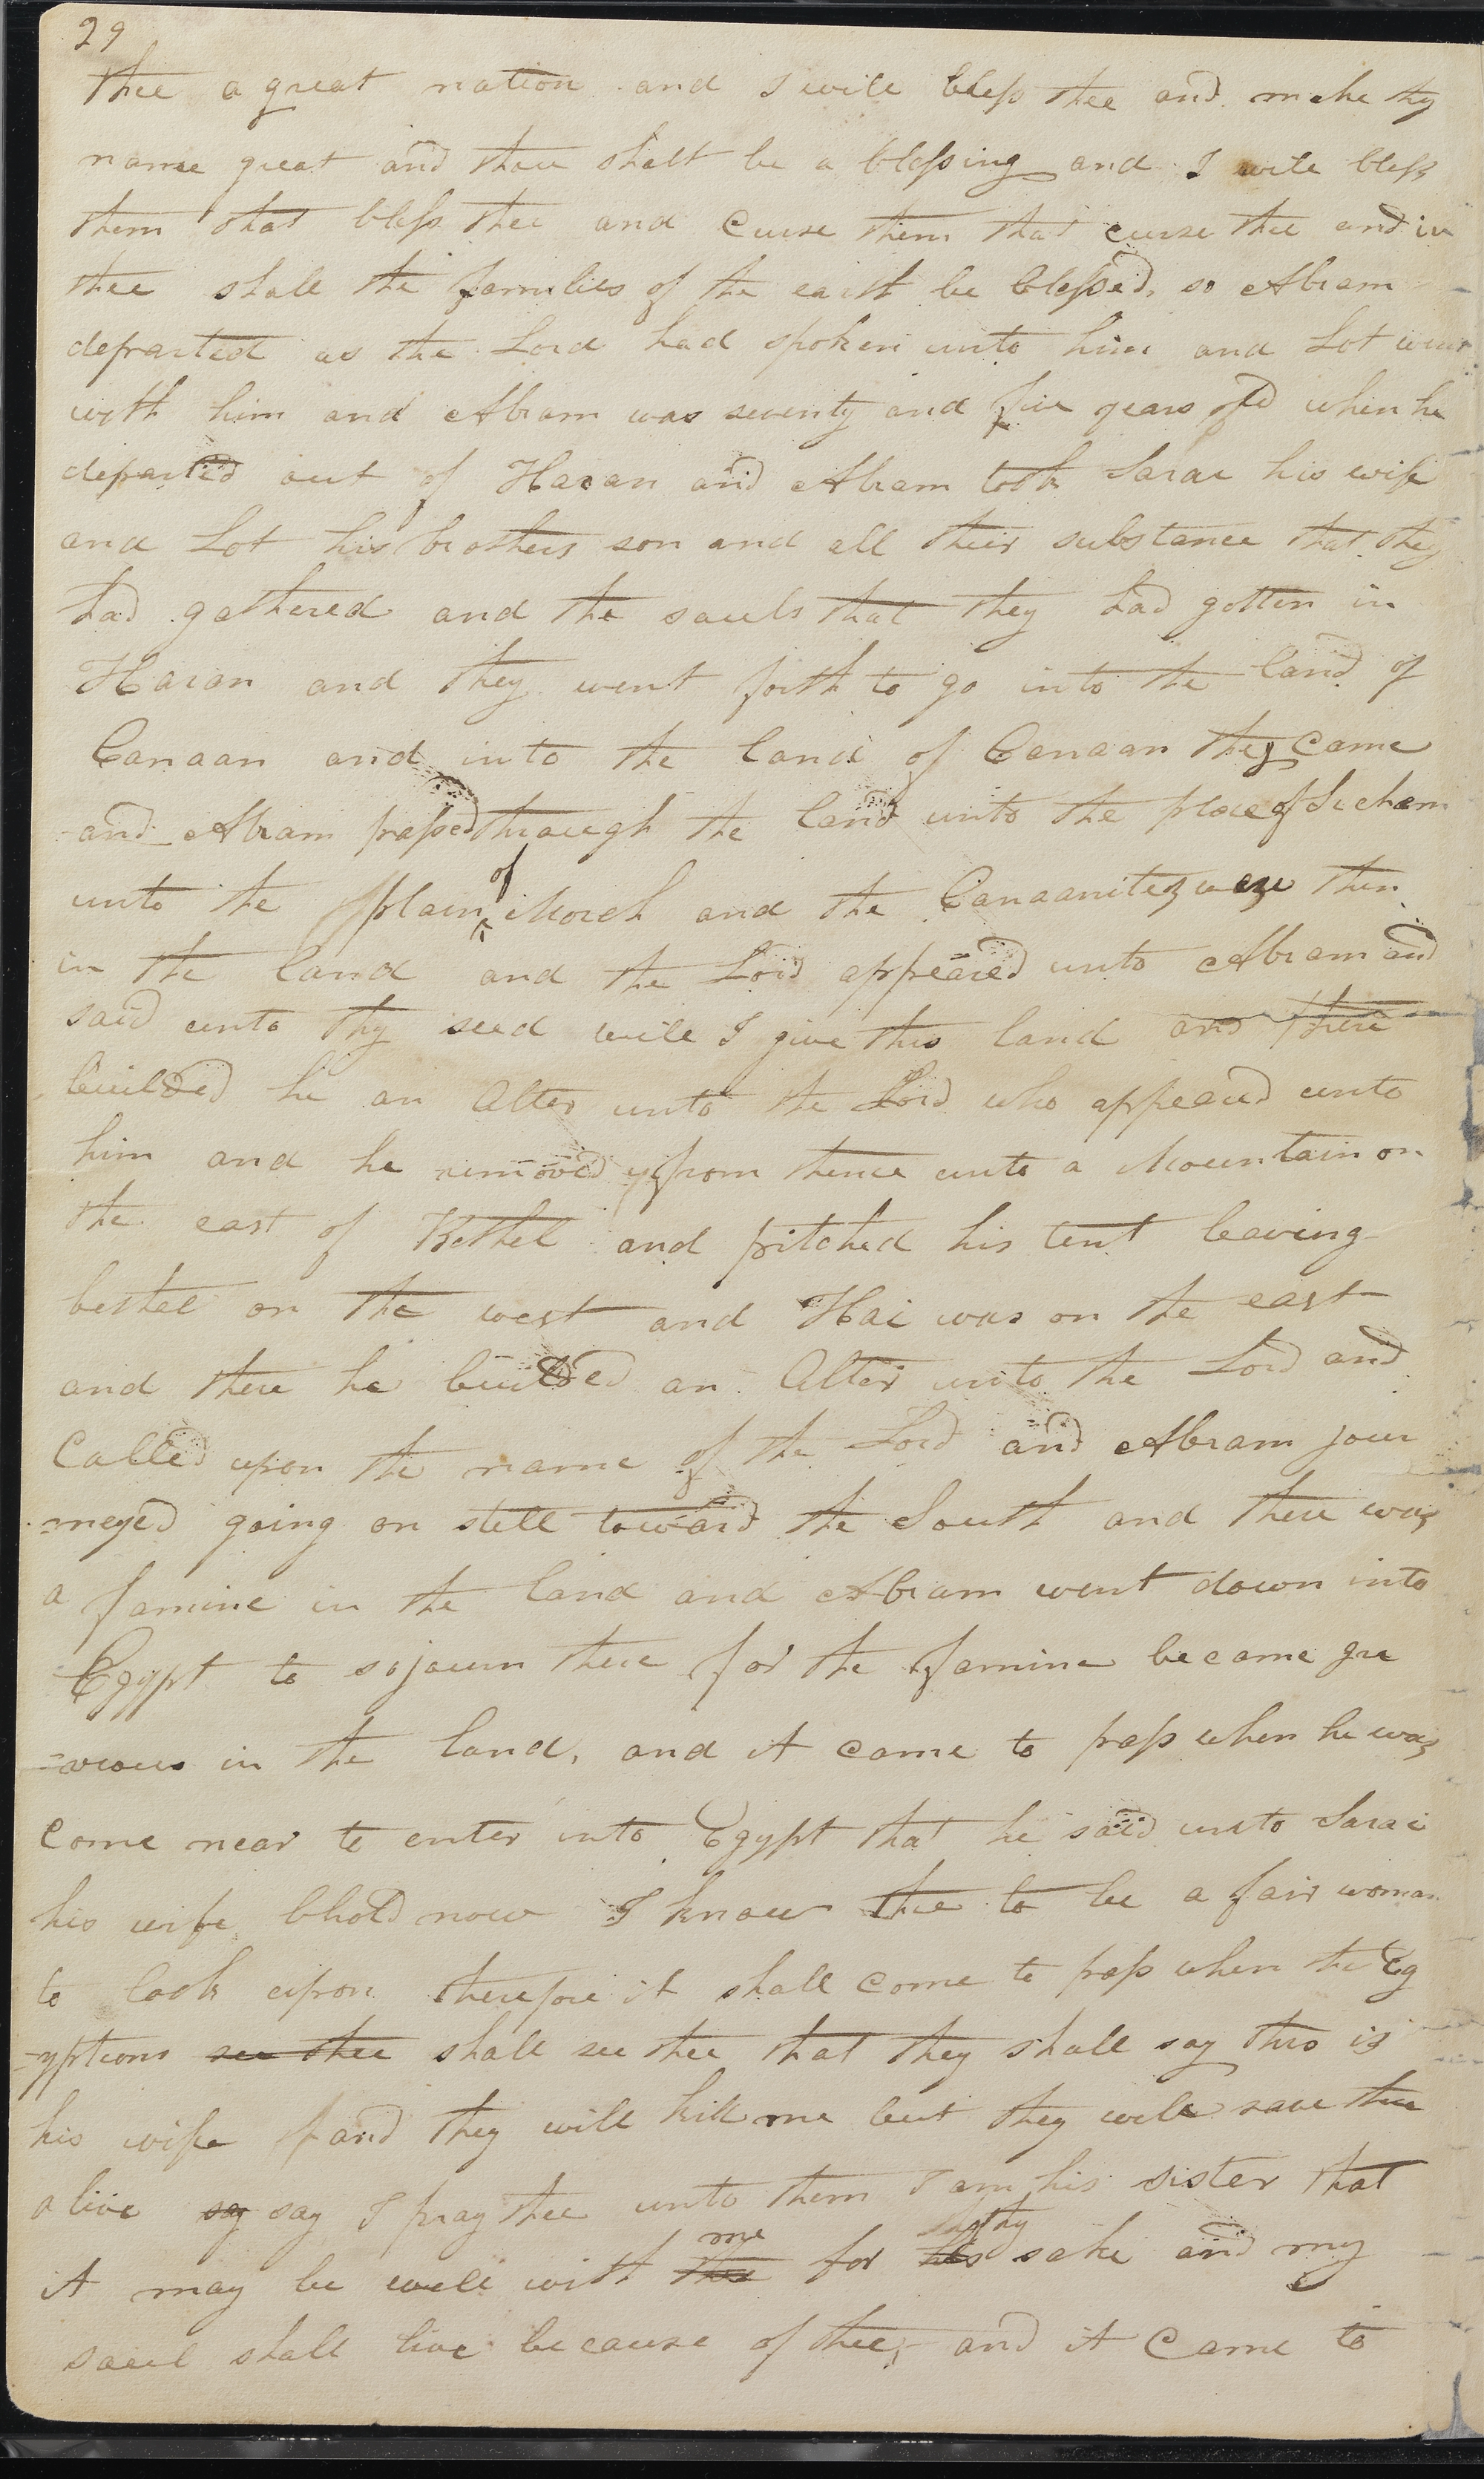 29
thee a great nation and I will bless thee and make thy
name great and thou shalt be a blessing and I will bless
them that bless thee and Curse them that curse thee and in
thee shall the families of the earth be blessed, so Abram
departed as the Lord had spoken unto him and Lot went
with him and Abram was seventy and five years old when he
departed out of Haran and Abram took Sarai his wife
and Lot his brothers son and all their substance that they
had gathered and the souls that they had gotten in
Haran and they went forth to go into the land of
Canaan and into the land of Canaan they came
and Abram passed through the land unto the place of Sichem
of
unto the plain Moreh and the Canaanites were then
in the land and the Lord appeared unto Abram and
said unto thy seed will I give this land and there
builded he an Alter unto the Lord who appeared unto
him and he removed from thence unto a Mountain on
the east of Bethel and pitched his tent leaving
bethel on the west and Hai was on the east
and there he builded an Alter unto the Lord and
Called upon the name of the Lord and Abram jour
=neyed going on still toward the South and there was
a famine in the land and Abram went down into
Egypt to sojourn there for the famine became gre
=avious in the land, and it came to pass when he was
Come near to enter into Egypt that he said unto Sarai
his wife bhold now I know thee to be a fair woman
to look upon therefore it shall come to pass when the Eg
=yptions see thee shall see thee that they shall say this is
his wife and they will kill me but they will save thee
alive say say I pray thee unto them I am his sister that
me thy
it may be well with thee for his sake and my
soul shall live because of thee, and it Came to